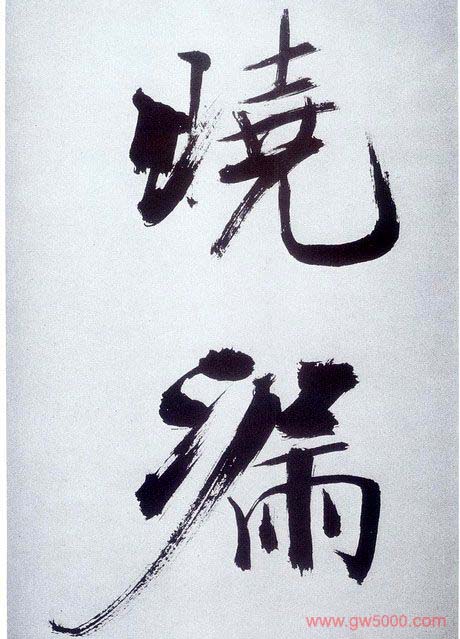 燒
猯
www.gw5000.com